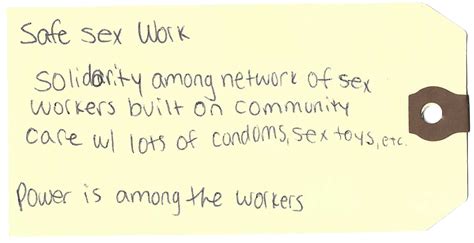 Safe sex Work
solidarity among network of sex
workers built on community
care w/ lots of condoms, sex toys, etc.
Power is among the workers